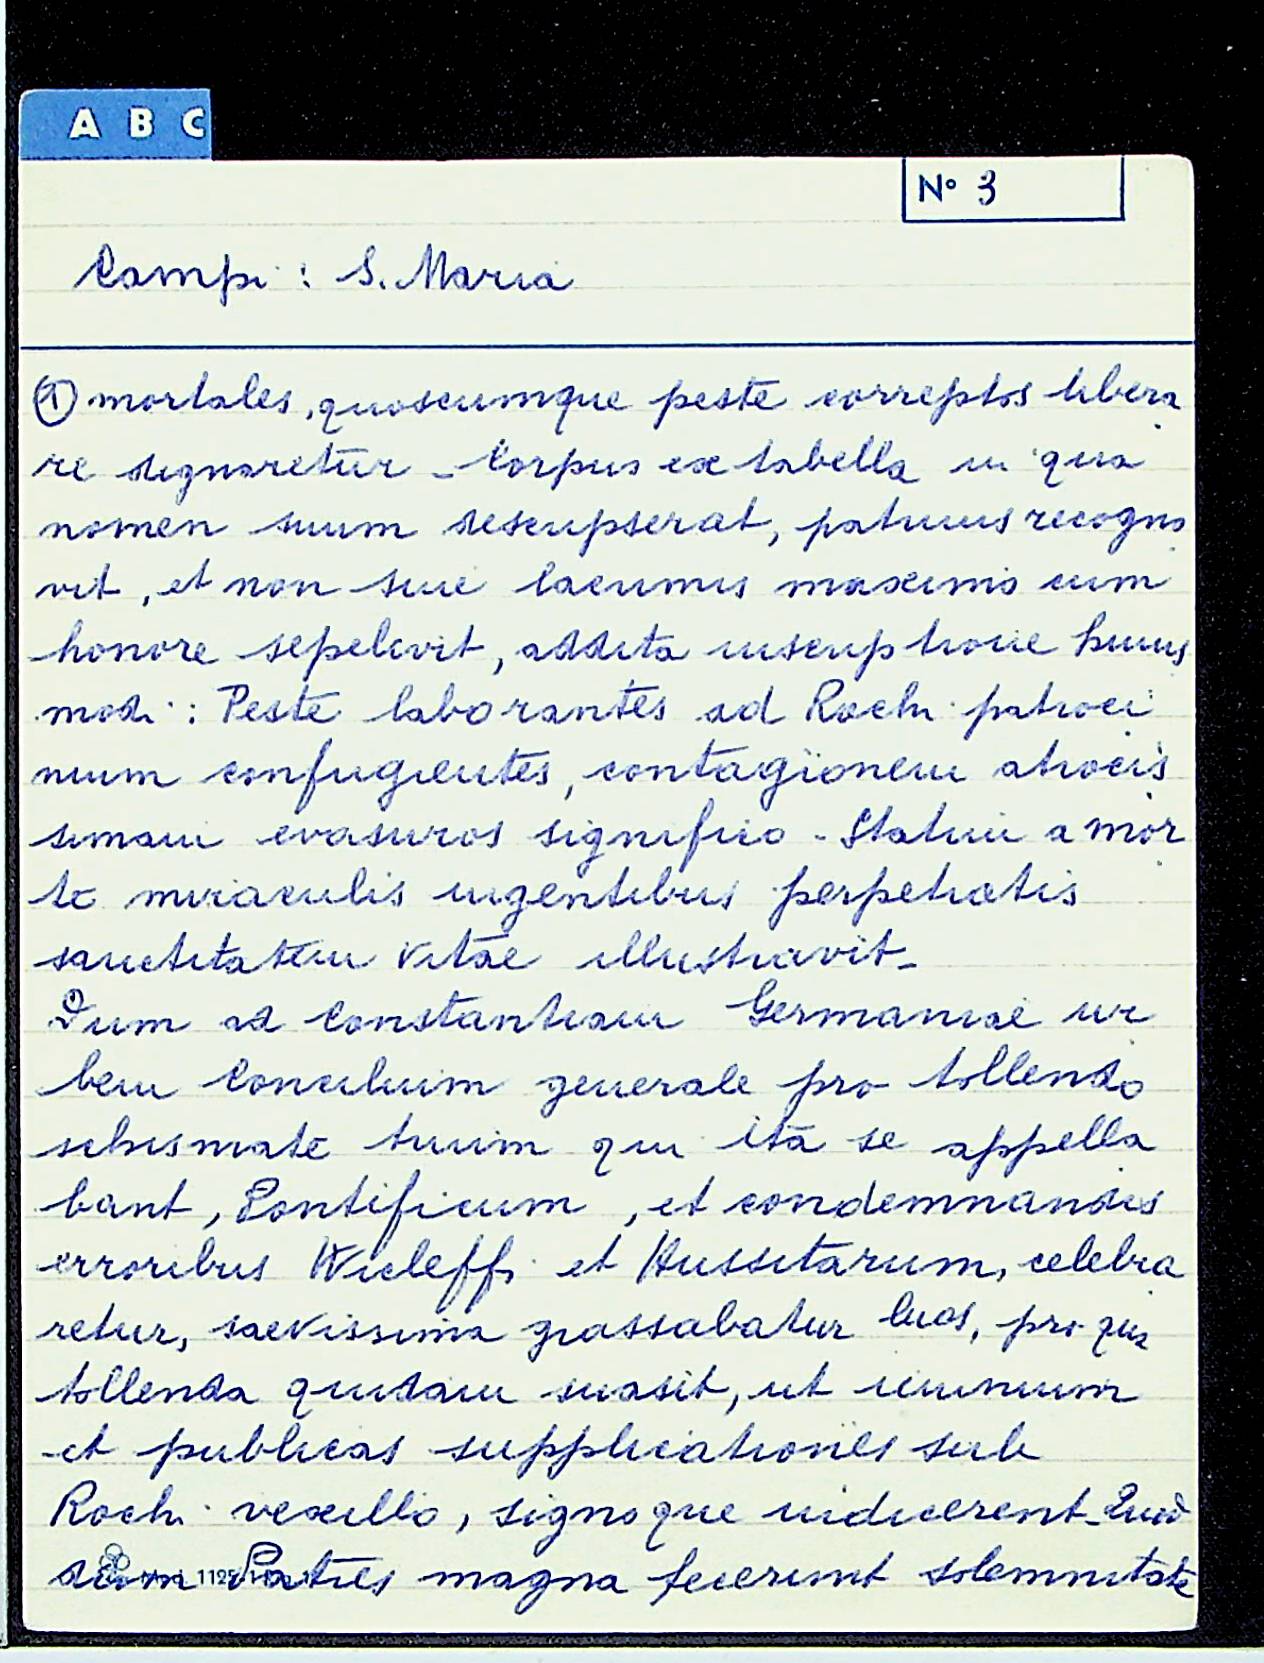 A B C
N° 3
Campi : S. Maria
① mortales, quoscumque peste correptos libera
re dignaretur - Corpus ex tabella in qua
nomen suum descripserat, patruus recogno
vit, et non sine lacrimis maximo cum
honore sepelivit, addita inscriptione huius
modi : Peste laborantes ad Rochi patroci
nium confugientes, contagionem atrocis
simam evasuros significo - Statim a mor
te miraculis ingentibus perpetratis
sanctitatem vitae illustravit -
Dum ad Constantiam Germaniae ur
bem Concilium generale pro tollendo
schismate trium qui ita se appella
bant, Pontificum, et condemnandis
erroribus Wicleffi et Hussitarum, celebra
retur, saevissima grassabatur lues, pro qua
tollenda quidam suasit, ut ieiunium
et publicas supplicationes sub
Rochi vexillo, signoque indicerent - Quod
dum Patres magna fecerunt solemnitate